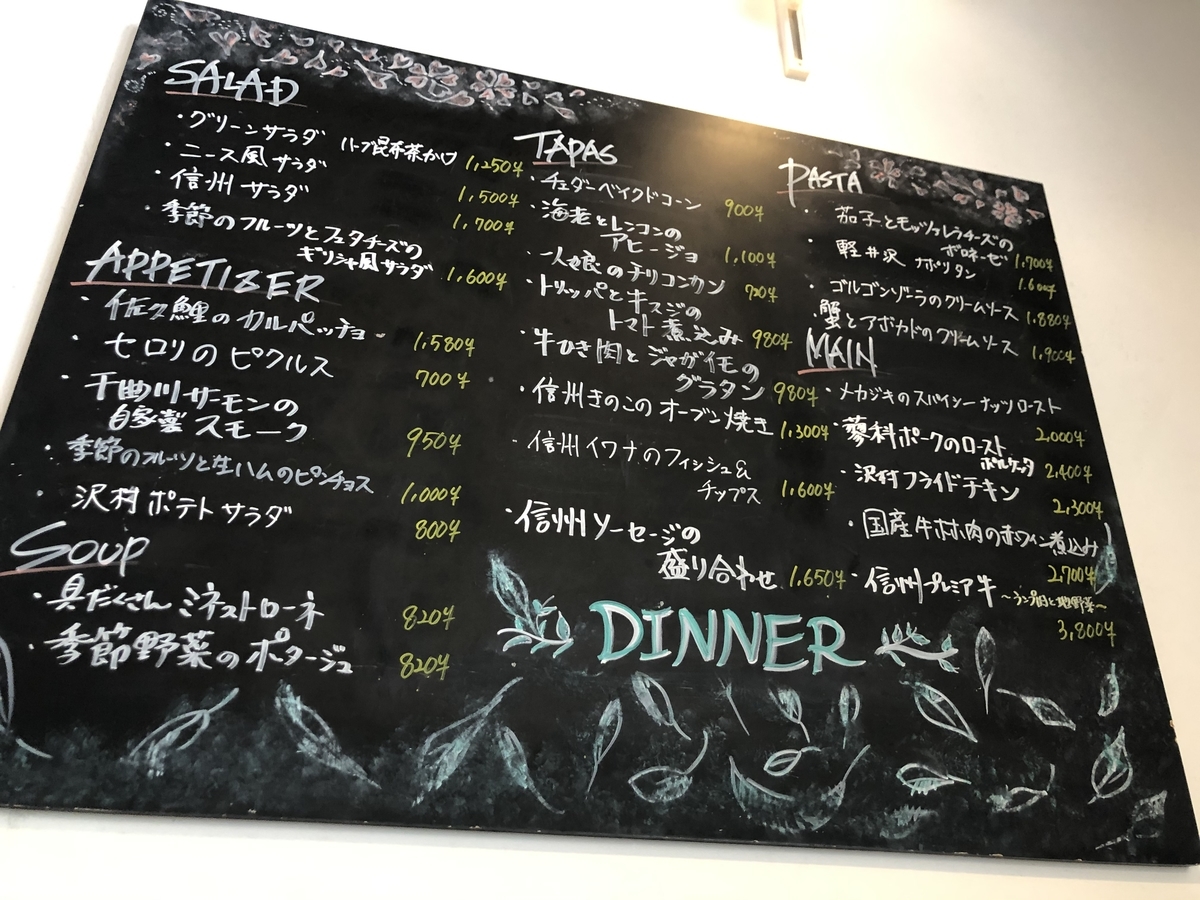 SALAD
・グリーンサラダ ハーブ昆布茶かけ 1,250¥
・ニース風サラダ 1,500¥
・信州サラダ 1,700¥
・季節のフルーツとフェタチーズの
ギリシャ風サラダ 1,600¥
APPETIZER
・佐久鯉のカルパッチョ 1,580¥
・セロリのピクルス 700¥
・千曲川サーモンの
自家製スモーク 950¥
・季節のフルーツと生ハムのピンチョス 1,000¥
・沢村ポテトサラダ 800¥
SOUP
・具だくさんミネストローネ 820¥
・季節野菜のポタージュ 820¥
TAPAS
・チェダーベイクドコーン 900¥
・海老とレンコンの
アヒージョ 1,100¥
・一人娘のチリコンカン
・トリッパと牛スジの
トマト煮込み 980¥
・牛ひき肉とジャガイモの
グラタン 980¥
・信州きのこのオーブン焼き 1,300¥
・信州イワナのフィッシュ&
チップス 1,600¥
・信州ソーセージの
盛り合わせ 1,650¥
PASTA
・茄子とモッツァレラチーズの
ボロネーゼ 1,700¥
・軽井沢ナポリタン 1,600¥
・ゴルゴンゾーラのクリームソース 1,880¥
・蟹とアボカドのクリームソース 1,900¥
MAIN
・メカジキのスパイシーナッツロースト 2,000¥
・蓼科ポークのロースト
ポルケッタ 2,400¥
・沢村フライドチキン 2,300¥
・国産牛ホホ肉の赤ワイン煮込み 2,700¥
・信州プレミア牛 〜ランプ肉と地野菜〜
3,800¥
DINNER